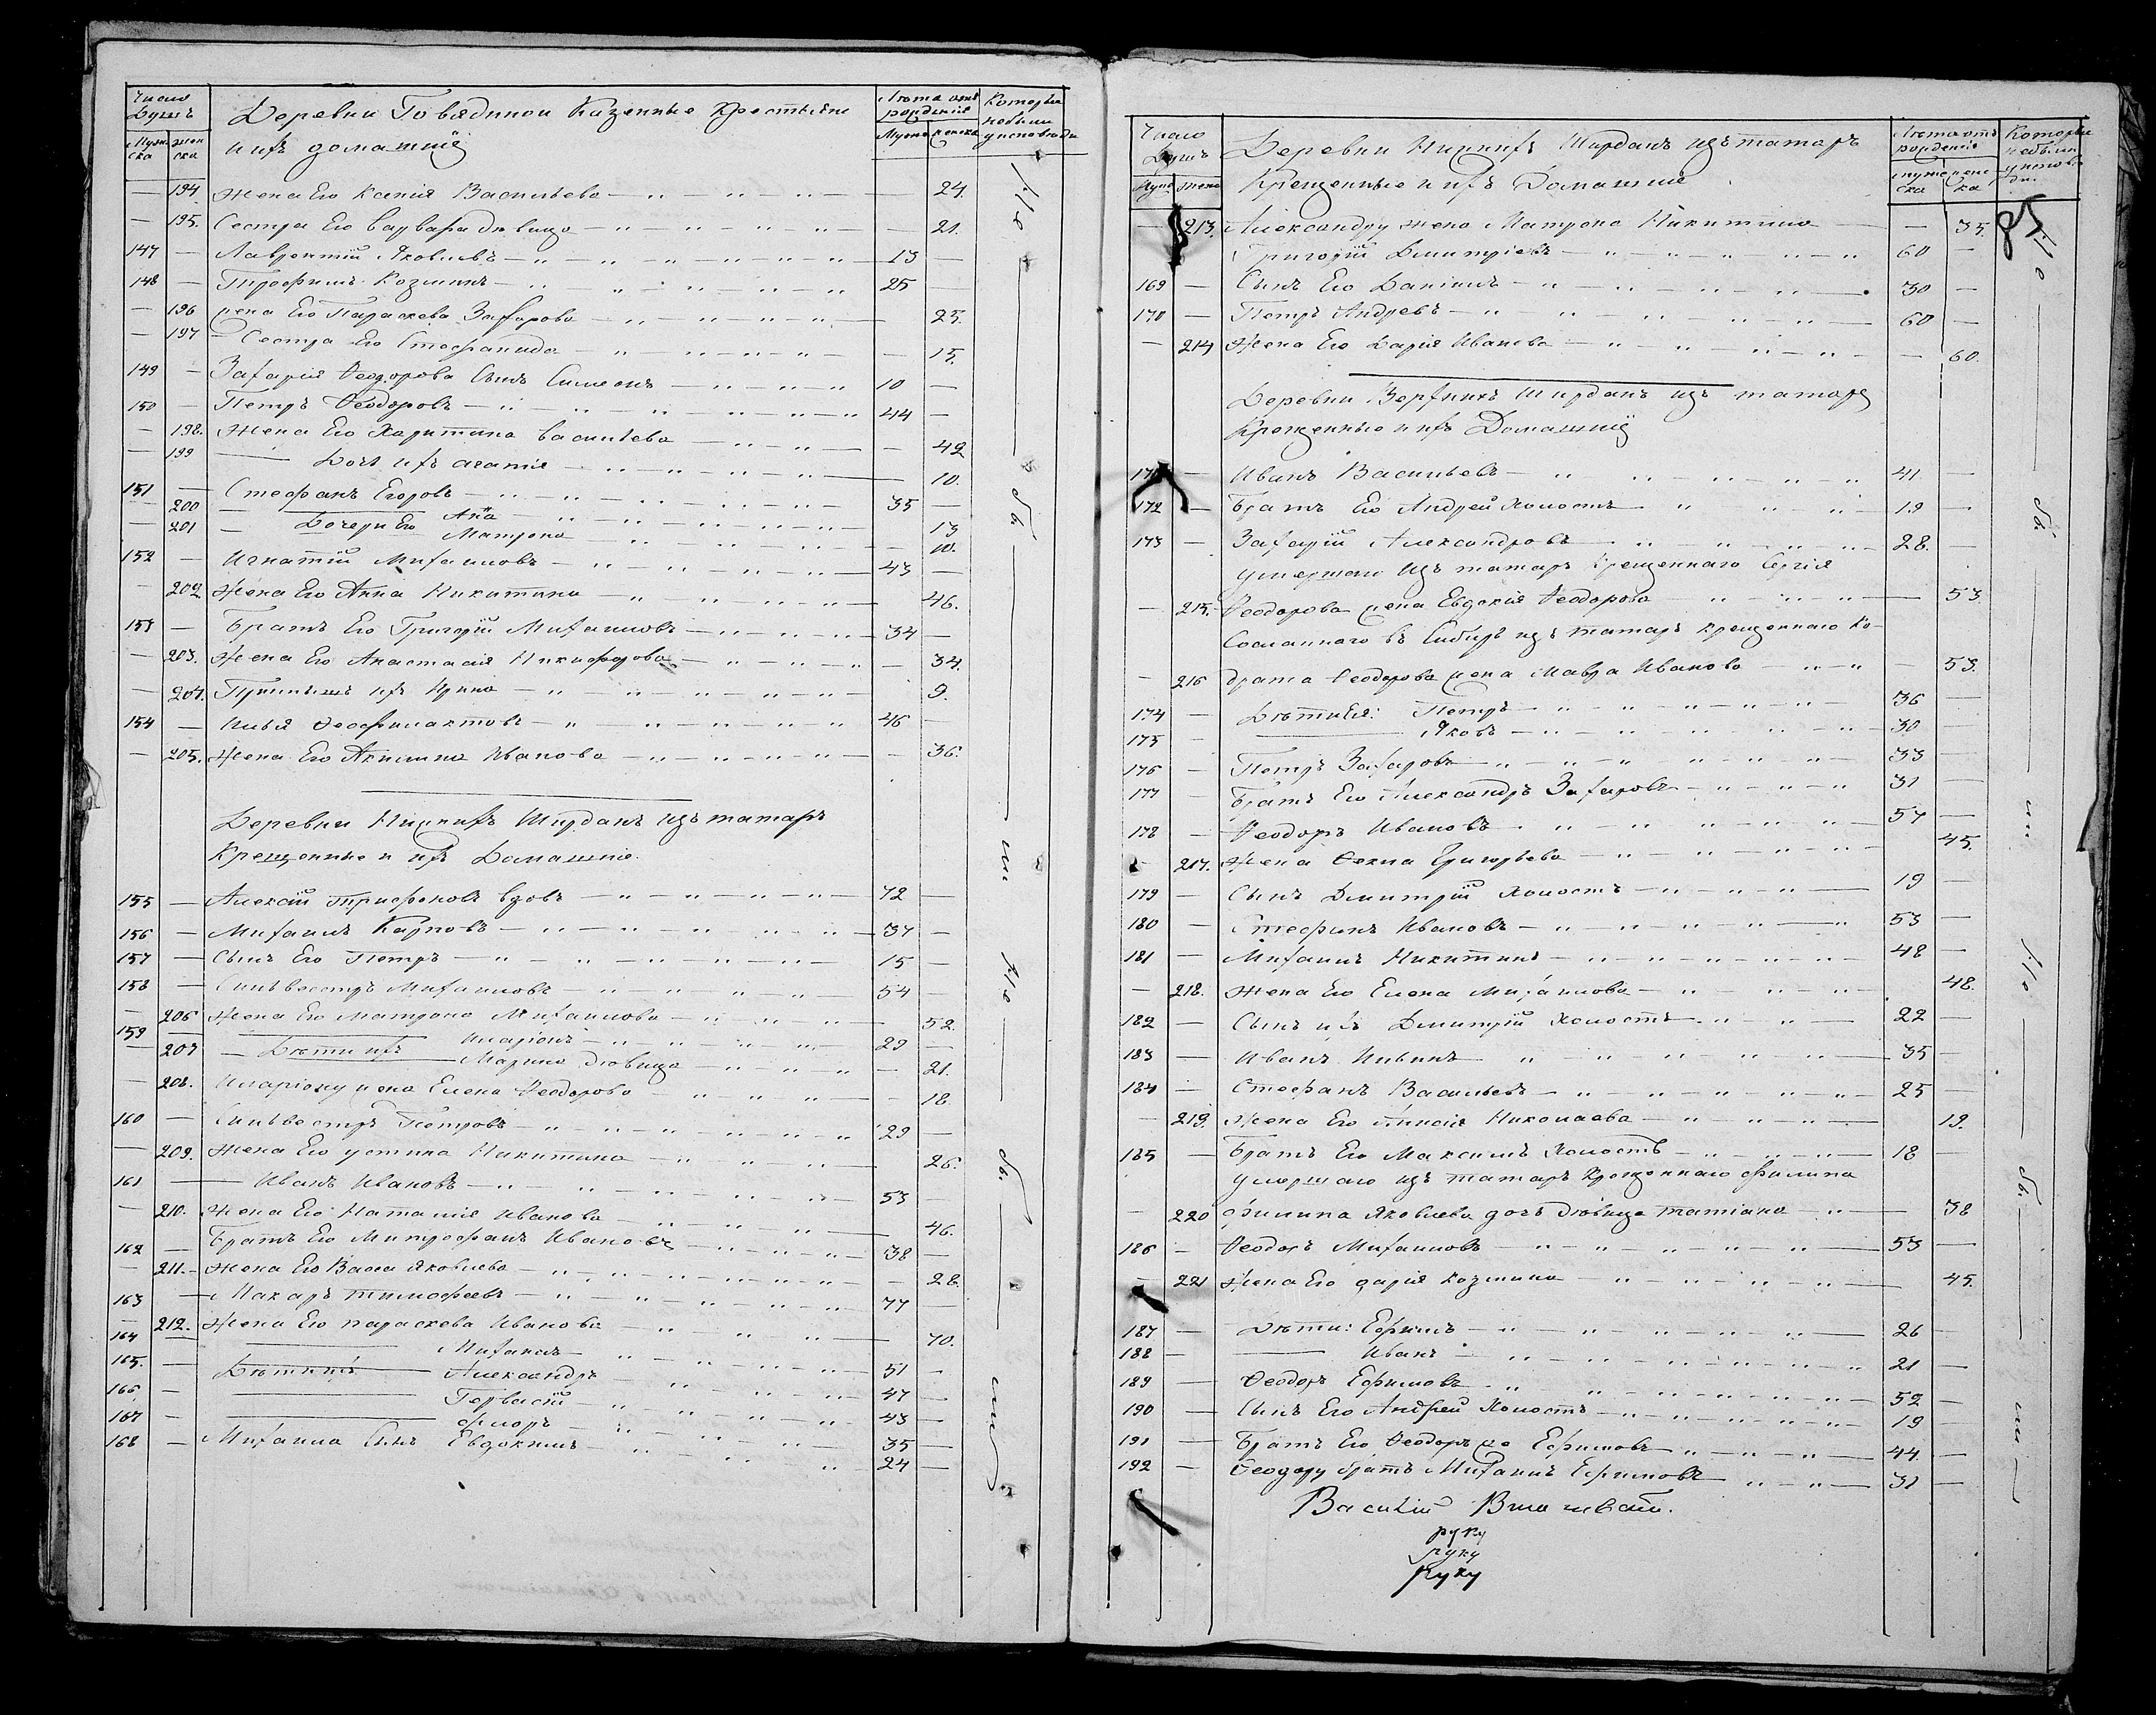 Число Душъ
Деревни Говядиной Казенные Крестьяне
Лета отъ рождения
Которые небыли у исповеди
Муже ска
жен ска
и ихъ домашнiе
Муже
женска
— 194 Жена Его Ксенiя Васильева — 24.
— 195. Сестра Его Варвара девица — 21.
147 — Лаврентiй Яковлевъ 13 —
148 — Трофимъ Козминъ 25 —
— 196 жена Его Параскева Захарова — 25.
— 197 Сестра Его Стефанида — 15.
149 — Захарiя Феодорова Сынъ Симеонъ 10 —
150 — Петръ Феодоровъ 44 —
— 198. Жена Его Харитина Васильева — 42
— 199 Дочь ихъ Агапiя 10.
151 — Стефанъ Егоровъ 35 —
— 200 Дочери Его Анна 13
— 201 Матрона 10.
152 — Игнатiй Михаиловъ 43 —
— 202 Жена Его Анна Никитина 46.
153 — Братъ Его Григорiй Михаиловъ 34 —
— 203. Жена Его Анастасiя Никифорова — 34.
— 204. ихъ Ирина 9.
154 — Илья Феофилактовъ 46 —
— 205. Жена Его Акилина Иванова — 36.
Деревни Нижнихъ Ширданъ изъ татаръ
Крещенные и ихъ Домашнiе.
155 — Алексiй Трифоновъ вдовъ 72 —
156 — Михаилъ Карповъ 37 —
157 — Сынъ Его Петръ 15 —
158 — Сильвестръ Михаиловъ 54 —
— 206 Жена Его Матрона Михаилова 52.
159 — Иларiонъ 29 —
— 207 Дети ихъ Марина девица — 21.
— 208. Иларiону жена Елена Феодорова — 18.
160 — Сильвестръ Петровъ 29 —
— 209. Жена Его Устина Никитина 26.
161 — Иванъ Ивановъ 53 —
— 210. Жена Его Наталiя Иванова 46.
162 — Братъ Его Митрофанъ Ивановъ 38 —
— 211. Жена Его Васса Яковлева — 28.
163 — Макаръ Тимофеевъ 77 —
— 212. Жена Его Параскева Иванова 70.
164 Михаилъ 51 —
165. — Дети ихъ Александръ 47 —
166 — Гервасiй 43 —
167 — Флоръ 35 —
168 — Михаила Сынъ Евдокимъ 24 —
Не
бы
ли
Не
бы
ли
Число Душъ
Деревни Нижнихъ Ширданъ изъ татаръ
Лета отъ рождения
Которые небыли у исповеди.
Муже
женс
Крещенные и ихъ Домашнiе
муже ска
женс ка
85
— 213. Александру жена Матрона Никитина — 35.
Григорiй Димитрiевъ 60 —
169 — Сынъ Его Данiилъ 30 —
170 — Петръ Андревъ 60 —
— 214 Жена Его Дарiя Иванова — 60.
Деревни Верхнихъ Ширданъ изъ татаръ
Крещенные и ихъ Домашнiе
171 — Иванъ Васильевъ 41 —
172 — Братъ Его Андрей Холостъ 19 —
173 — Захарiй Александровъ 28. —
Умершаго изъ татаръ Крещеннаго Сергiя
— 215. Феодорова жена Евдокiя Феодорова — 53
Сосланнаго въ Сибирь изъ татаръ крещеннаго Ко-
— 216 драта Феодорова жена Мавра Иванова — 53.
174 — Дети Ея: Петръ 36 —
175 — Яковъ 30 —
176 — Петръ Захаровъ 33 —
177 — Братъ Его Александръ Захаровъ 31 —
178 — Феодоръ Ивановъ 57 —
— 217. Жена Фекла Григорьева 45.
179 — Сынъ Димитрiй Холостъ 19 —
180 — Стефанъ Ивановъ 53 —
181 — Михаилъ Никитинъ 48 —
— 218. Жена Его Елена Михаилова 48.
182 — Сынъ ихъ Димитрiй Холостъ 22 —
183 — Иванъ Ильинъ 35 —
184 — Стефанъ Васильевъ 25 —
— 219. Жена Его Николаева 19.
185 — Братъ Его Максимъ Холостъ 18 —
Умершаго изъ татаръ Крещеннаго Филипа
— 220 Филипа Яковлева дочь девица Татiана — 38
186 — Феодоръ Михаиловъ 53 —
— 221 Жена Его Дарiя Козмина 45.
187 — Дети: Ефимъ 26 —
188 — Иванъ 21 —
189 — Феодоръ Ефимовъ 52 —
190 — Сынъ Его Андрей Холостъ 19 —
191 — Братъ Его Феодоръ же Ефимовъ 44 —
192 — Феодору братъ Михаилъ Ефимовъ 31 —
Василiй
руку
руку
руку
Не
бы
ли
Не
бы
ли